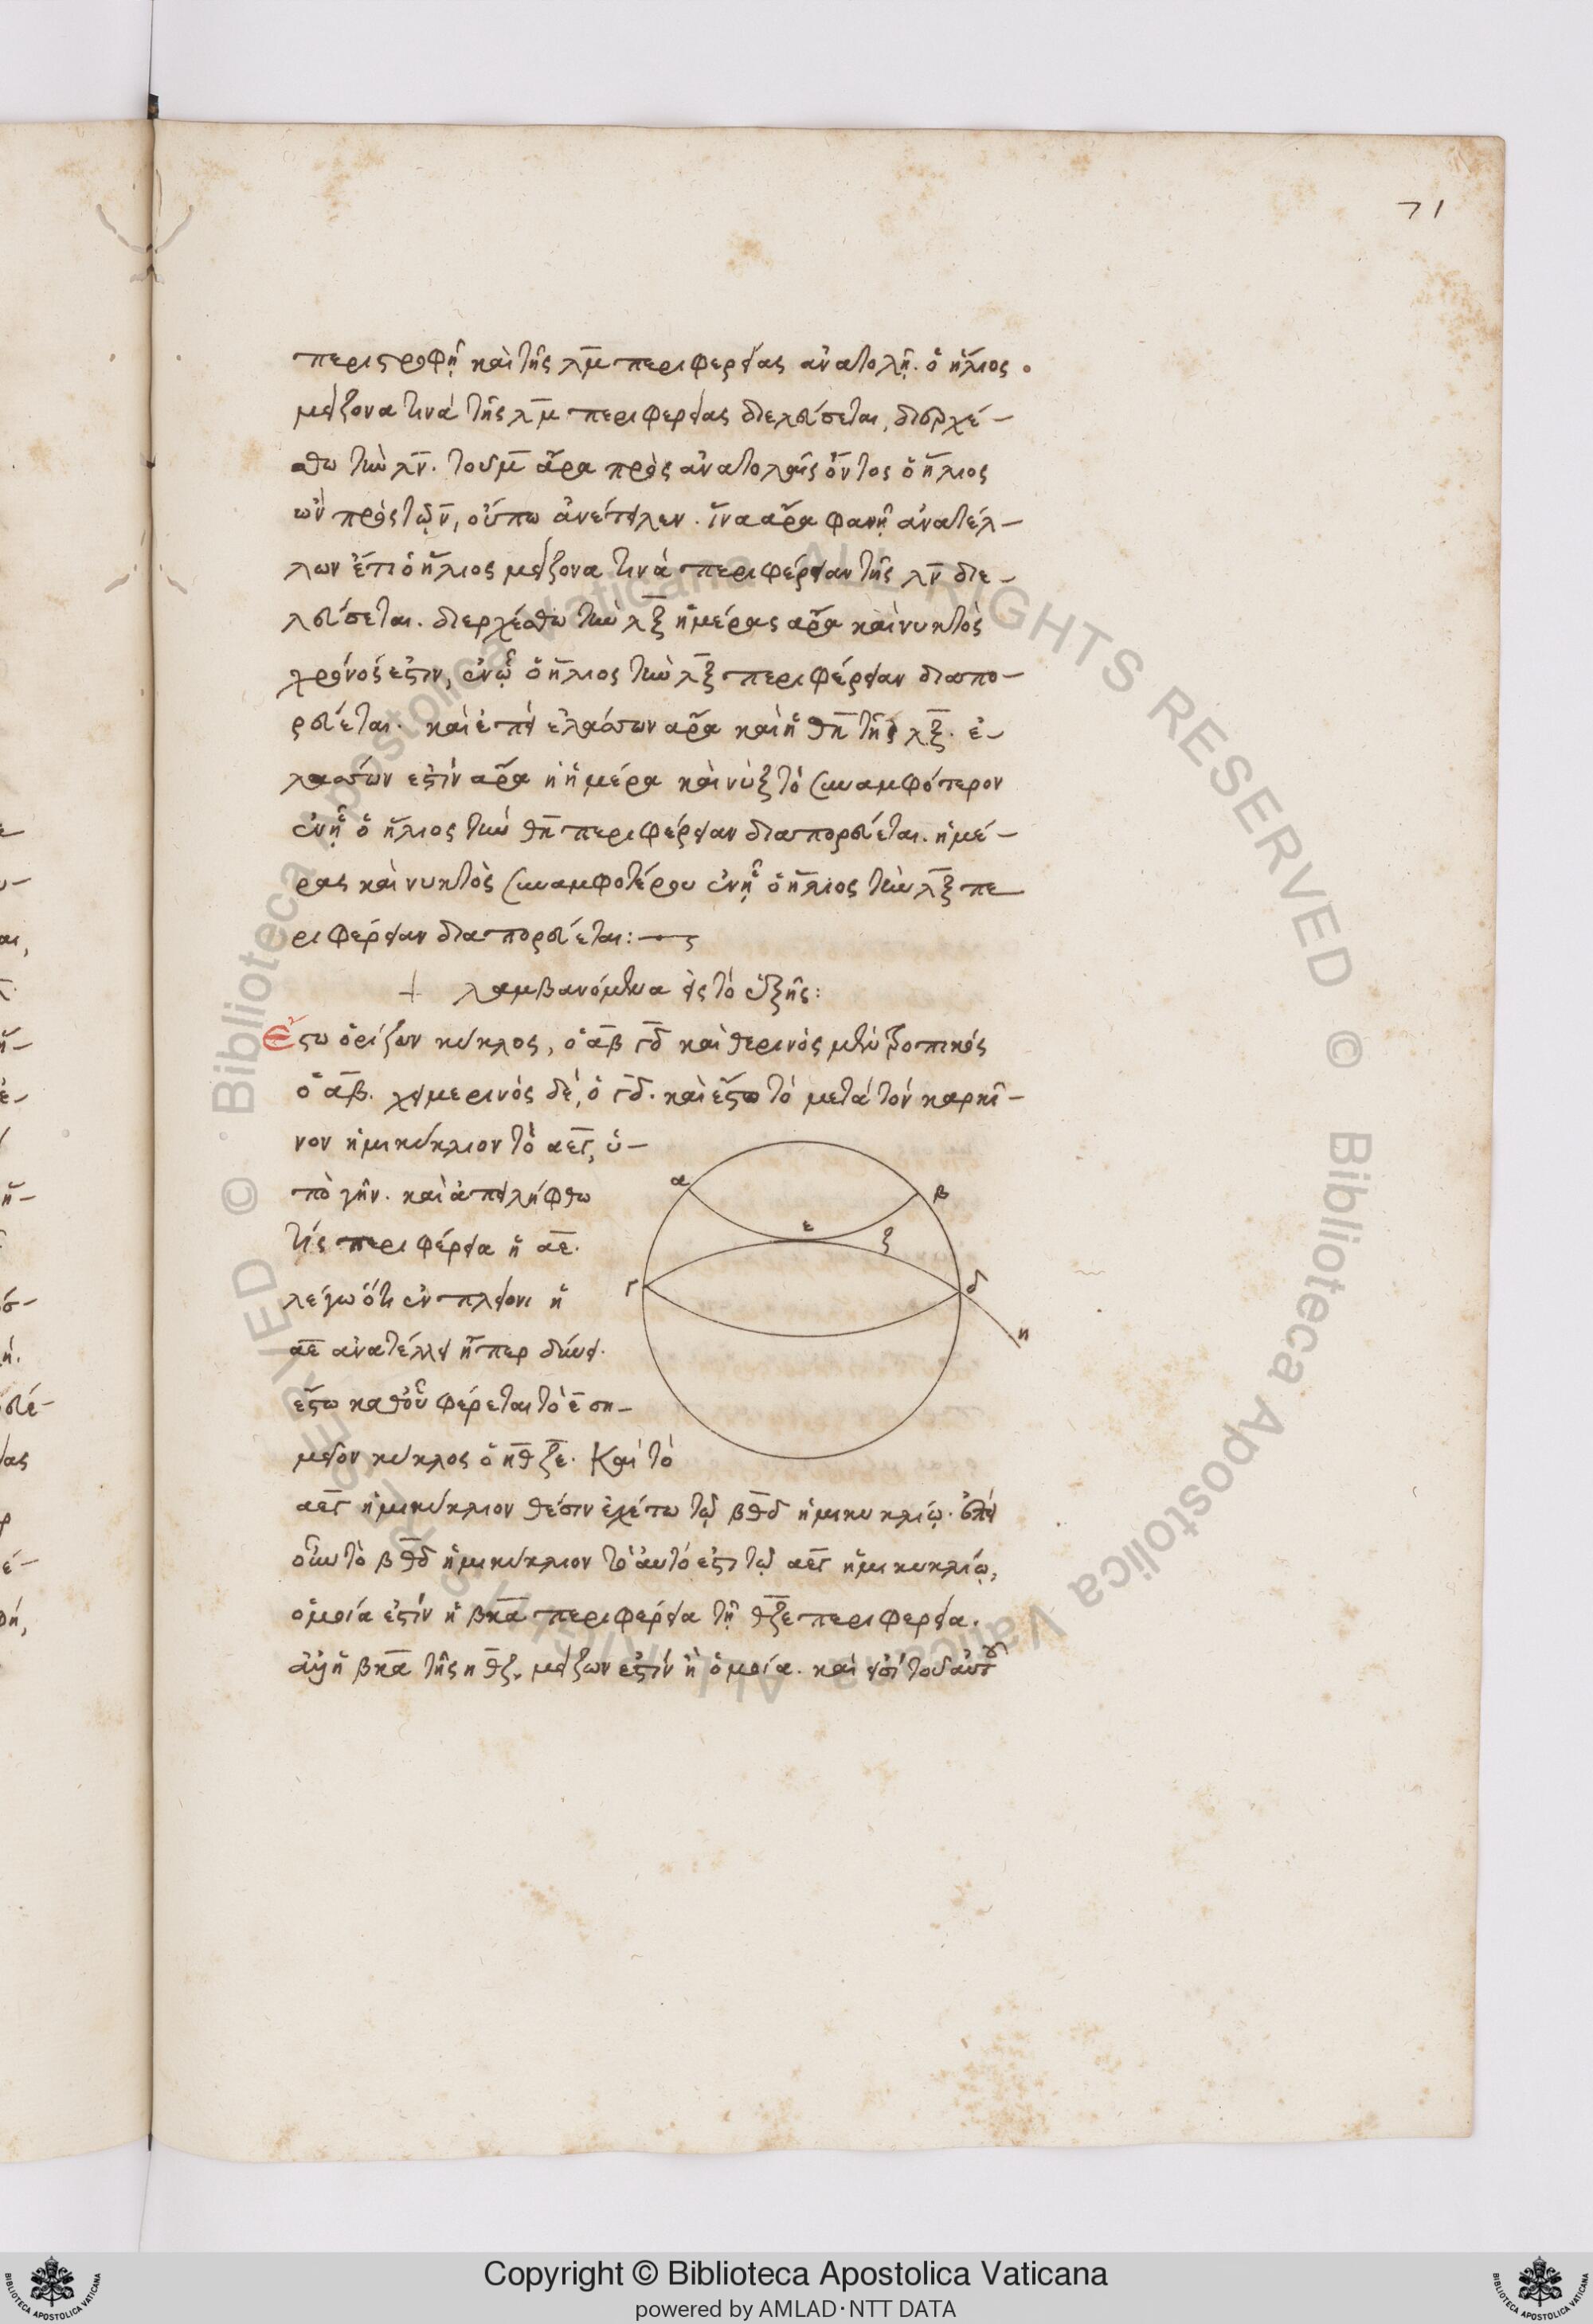 71
περιστροφῇ καὶ τῆς λμ περιφερείας ἀνατολῇ. ὁ ἥλιος
μείζονα τινὰ τῆς λμ περιφερείας διελεύσεται, διερχέ-
σθω τὴν λν. τοῦ μ ἄρα πρὸς ἀνατολαῖς ὄντος ὁ ἥλιος
ὢν πρὸς τῷ ν, οὔπω ἀνέτειλεν. ἵνα ἄρα φανῇ ἀνατέλ-
λων ἔτι ὁ ἥλιος μείζονα τινὰ περιφέρειαν τῆς λν διε-
λεύσεται. διερχέσθω τὴν λξ ἡμέρας ἄρα καὶ νυκτὸς
χρόνος ἐστιν, ἐν ᾧ ὁ ἥλιος τὴν λξ περιφέρειαν διαπο-
ρεύεται. καὶ ἐπεὶ ἐλάσσων ἄρα καὶ ἡ θπ τῆς λξ. ἐ-
λάσσων ἐστὶν ἄρα ἡ ἡμέρα καὶ νὺξ τὸ συναμφότερον
ἐν ᾗ ὁ ἥλιος τὴν θπ περιφέρειαν διαπορεύεται. ἡμέ-
ρας καὶ νυκτὸς συναμφοτέρου ἐν ᾗ ὁ ἥλιος τὴν λξ πε
ριφέρειαν διαπορεύεται:
+ λαμβανόμενα εἰς τὸ ἑξῆς:
Ἔστω ὁρίζων κύκλος, ὁ αβ γδ καὶ θερινὸς μὲν τροπικός
ὁ αβ. χειμερινὸς δέ, ὁ γδ. καὶ ἔστω τὸ μετὰ τὸν καρκί-
νον ἡμικύκλιον τὸ αεγ, ὑ-
πὸ γῆν. καὶ ἀπειλήφθω
τίς περιφέρεια ἡ αε.
λέγω ὅτι ἐν πλείονι ἡ
αε ἀνατέλλει ἤπερ δύνει.
ἔστω καθ' οὗ φέρεται τὸ ε ση-
μεῖον κύκλος ὁ ηθ ζε. Καὶ τὸ
αεγ ἡμικύκλιον θέσιν ἐχέτω τῷ βθδ ἡμικυκλίῳ. ἐπεὶ
οὖν τὸ βθδ ἡμικύκλιον τὸ αὐτό ἐστι τῷ αεγ ἡμικυκλίῳ,
ὁμοία ἐστὶν ἡ βκα περιφέρεια τῇ θζε περιφερεία.
ἀλλ' ἡ βκα τῆς ηθζ. μείζων ἐστὶν ἢ ὁμοία. καὶ
α
β
ε
ξ
γ
δ
η
Copyright © Biblioteca Apostolica Vaticana
powered by AMLAD·NTT DATA
© Biblioteca Apostolica Vaticana ALL RIGHTS RESERVED
© Biblioteca Apostolica Vaticana ALL RIGHTS RESERVED
BIBLIOTECA APOSTOLICA VATICANA
BIBLIOTECA APOSTOLICA VATICANA